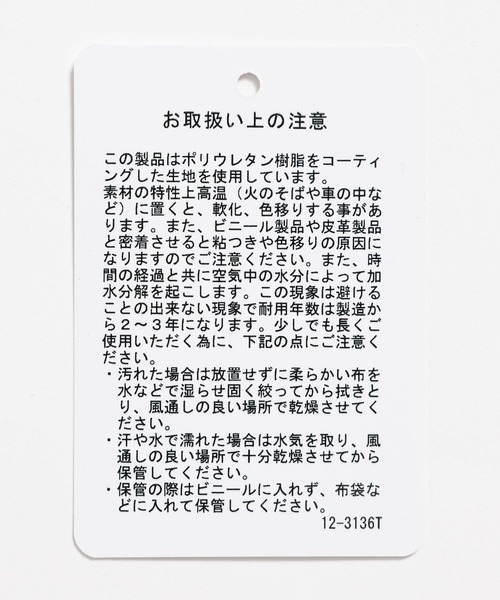 お取扱い上の注意
この製品はポリウレタン樹脂をコーティ
ングした生地を使用しています。
素材の特性上高温（火のそばや車の中な
ど）に置くと、軟化、色移りする事があ
ります。また、ビニール製品や皮革製品
と密着させると粘つきや色移りの原因に
なりますのでご注意ください。また、時
間の経過と共に空気中の水分によって加
水分解を起こします。この現象は避ける
ことの出来ない現象で耐用年数は製造か
ら２～３年になります。少しでも長くご
使用いただく為に、下記の点にご注意く
ださい。
・汚れた場合は放置せずに柔らかい布を
水などで湿らせ固く絞ってから拭きと
り、風通しの良い場所で乾燥させてく
ださい。
・汗や水で濡れた場合は水気を取り、風
通しの良い場所で十分乾燥させてから
保管してください。
・保管の際はビニールに入れず、布袋な
どに入れて保管してください。
12-3136T